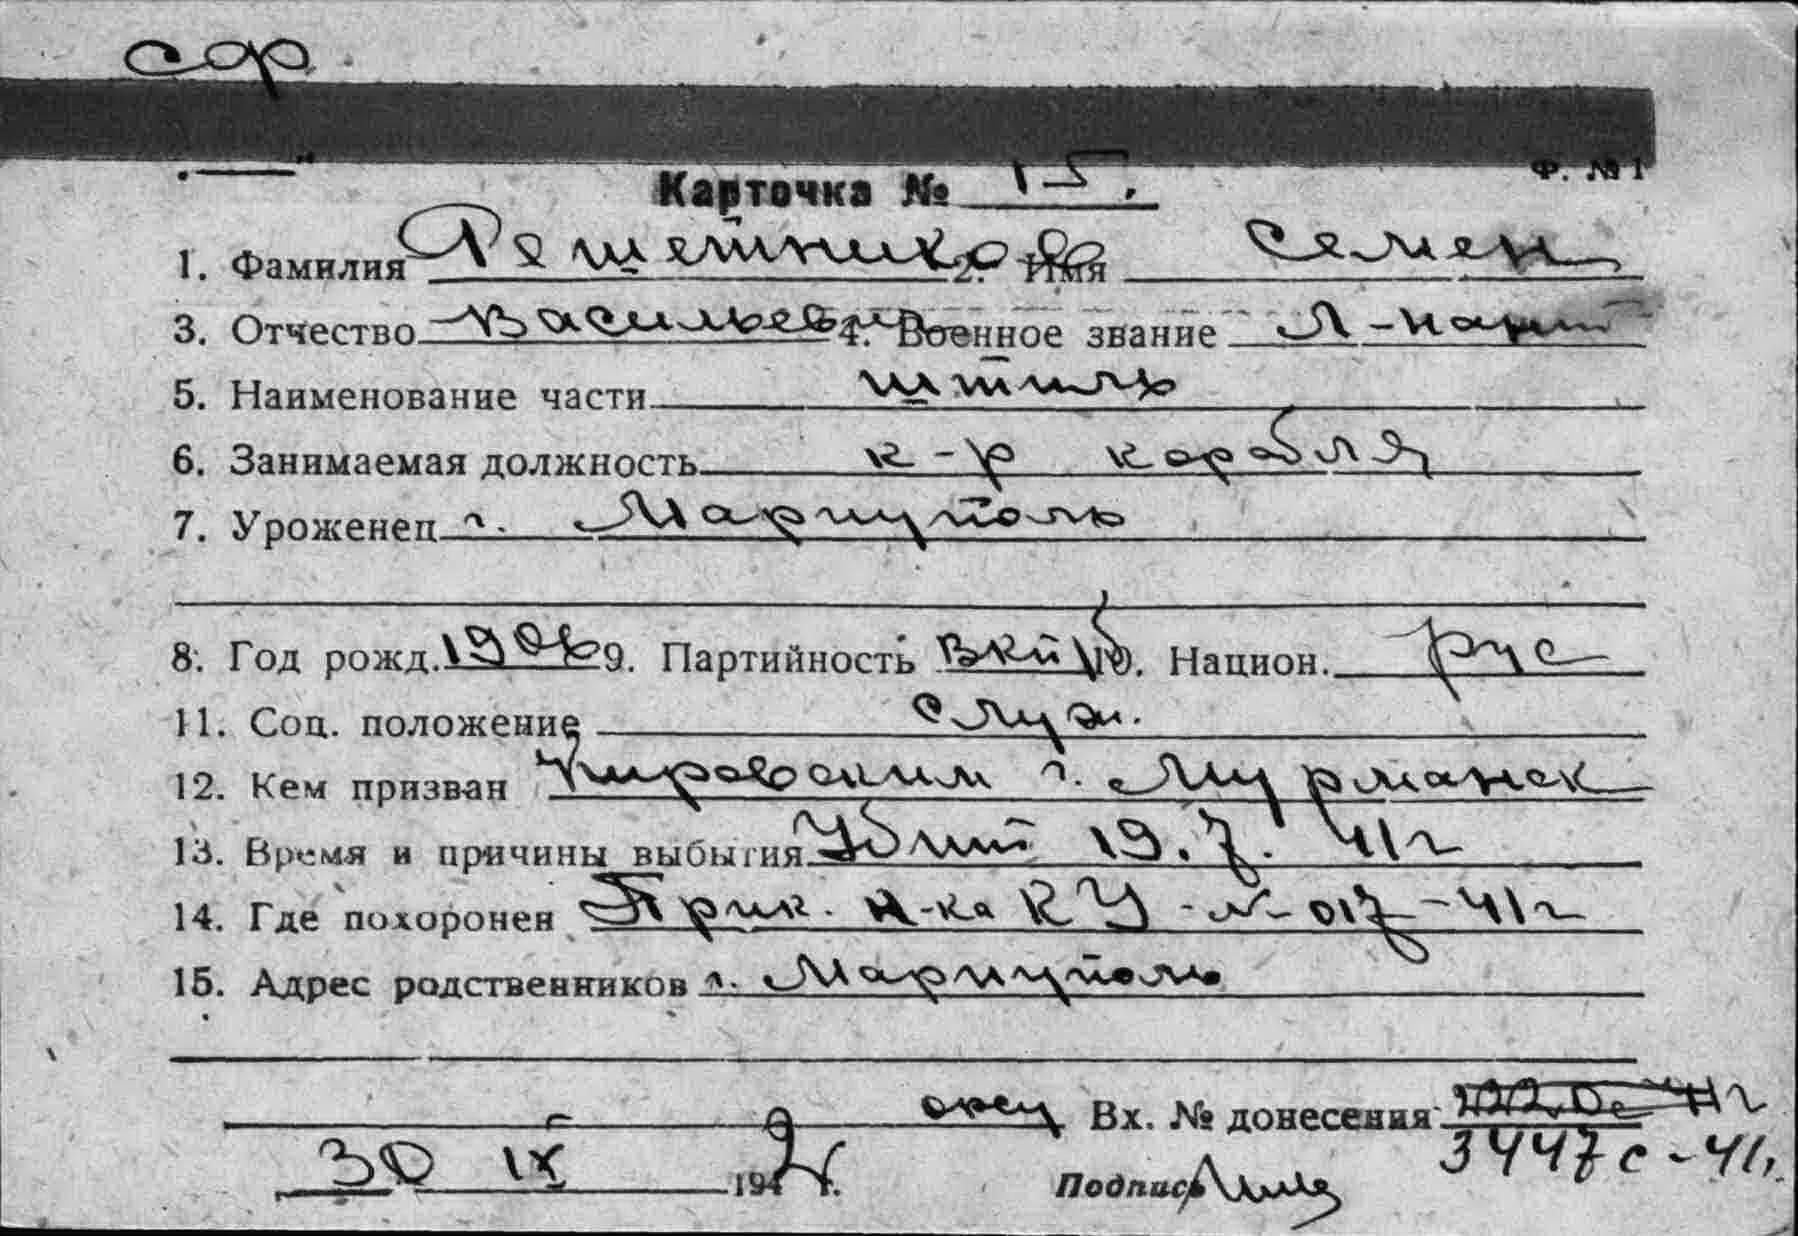 СФ
Ф. № 1
Карточка № 15.
1. Фамилия Решетников 2. Имя Семен
3. Отчество Васильевич 4. Военное звание Л-нант
5. Наименование части Штиль
6. Занимаемая должность к-р корабля
7. Уроженец г. Мариуполь
8. Год рожд. 1906 9. Партийность ВКП/б 10. Национ. рус
11. Соц. положение служ.
12. Кем призван Кировским г. Мурманск
13. Время и причины выбытия Убит 19.7.41г
14. Где похоронен Прик. н-ка КУ-№-017-41г
15. Адрес родственников г. Мариуполь
Вх. № донесения
3447с-41г
30 IX 1942 г. Подпись